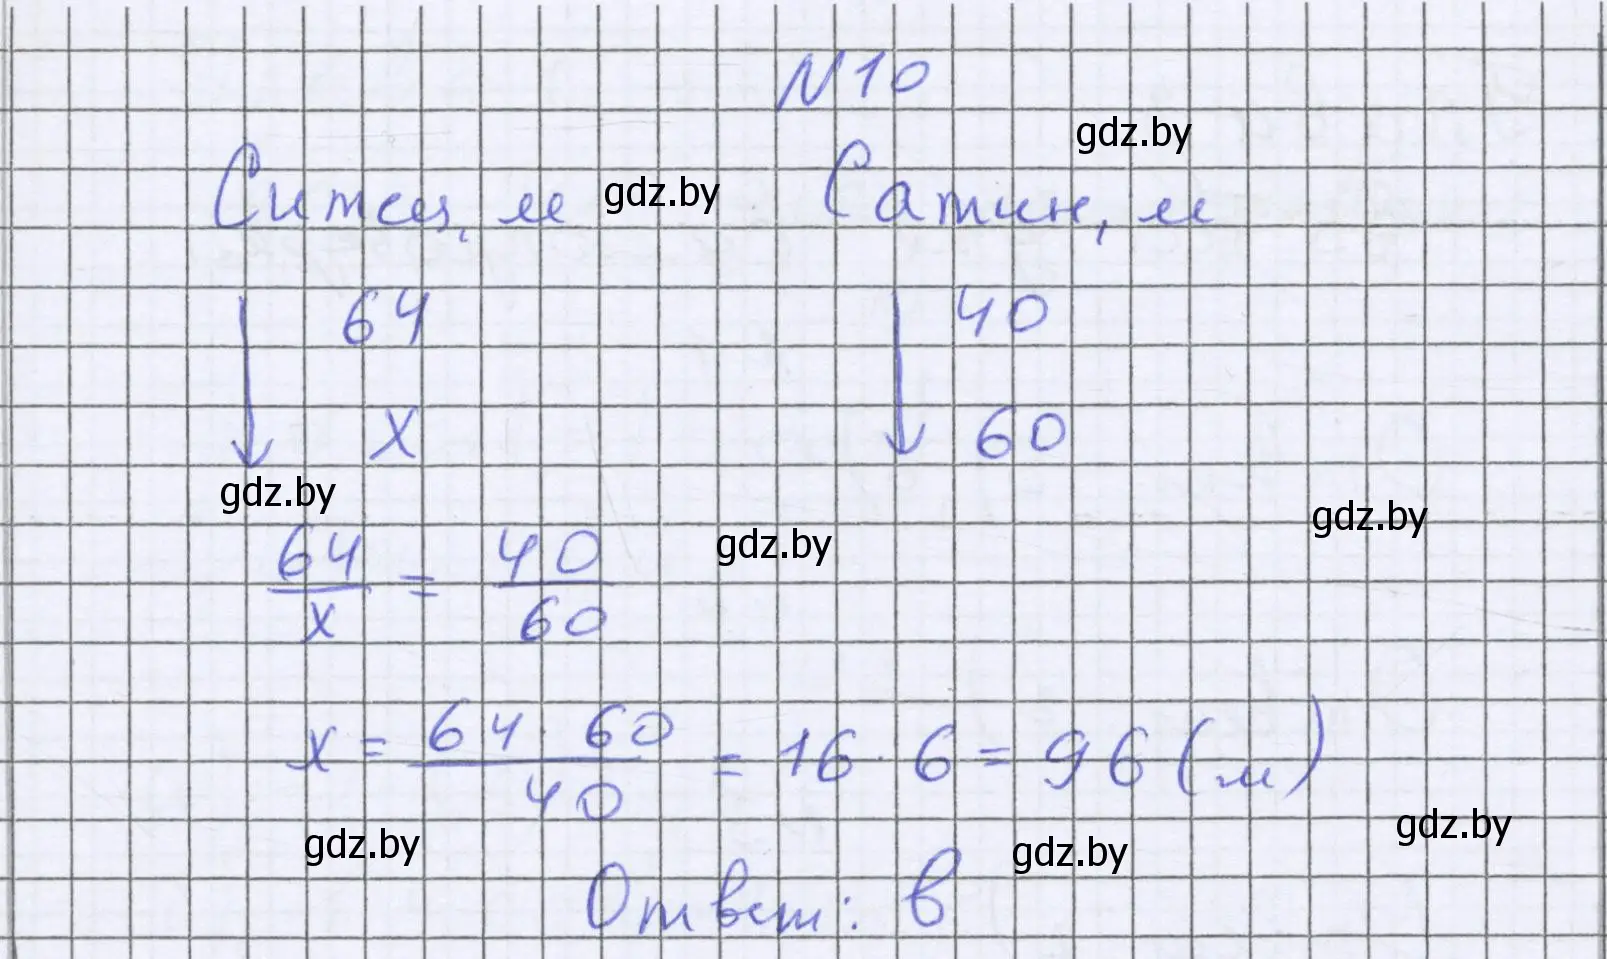 N10
gdz.by
Ситец, м gdz.by Сатин, м
64 40
x 60
gdz.by gdz.by gdz.by
64/x = 40/60
x = 64 · 60/40 = 16 · 6 = 96 (м)
gdz.by gdz.by gdz.by
Ответ: в